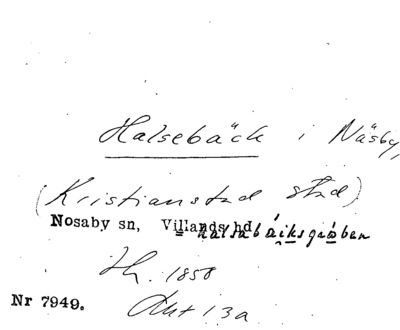 Halsebäck i Näsby,
(Kristianstad stad)
Nosaby sn, Villands hd halsabäcksgraben
Jh. 1858
Nr 7949. Akt 13a